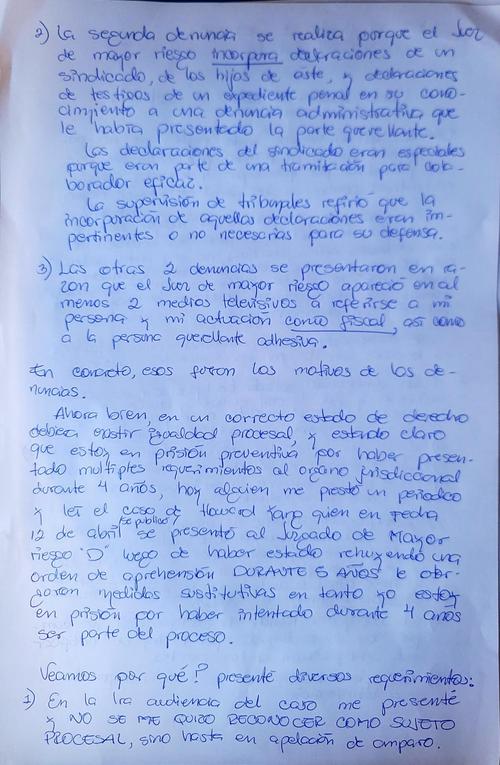 2) La segunda denuncia se realiza porque el Juez
de mayor riesgo incorpora declaraciones de un
sindicado, de los hijos de éste, y declaraciones
de testigos de un expediente penal en su cono-
cimiento a una denuncia administrativa que
le había presentado la parte querellante.
Las declaraciones del sindicado eran especiales
porque eran parte de una tramitación para cola-
borador eficaz.
La supervisión de tribunales refirió que la
incorporación de aquellas declaraciones eran im-
pertinentes o no necesarias para su defensa.
3) Las otras 2 denuncias se presentaron en ra-
zon que el Juez de mayor riesgo apareció en al
menos 2 medios televisivos a referirse a mi
persona y mi actuación como fiscal, así como
a la persona querellante adhesiva.
En concreto, esos fueron los motivos de las de-
nuncias.
Ahora bien, en un correcto estado de derecho
debiera existir igualdad procesal, y estando claro
que estoy en prisión preventiva por haber presen-
tado multiples requerimientos al organo jurisdiccional
durante 4 años, hoy alguien me prestó un periodico
y leí el caso de Howard Yang quien en fecha
(se publicó)
12 de abril se presentó al Juzgado de Mayor
riesgo "D" luego de haber estado rehuyendo una
orden de aprehensión DURANTE 5 AÑOS le otor-
garon medidas sustitutivas en tanto yo estoy
en prisión por haber intentado durante 4 años
ser parte del proceso.
Veamos por qué? presenté diversos requerimientos:
1) En la 1ra audiencia del caso me presenté
y NO SE ME QUIZO RECONOCER COMO SUJETO
PROCESAL, sino hasta en apelación de amparo.